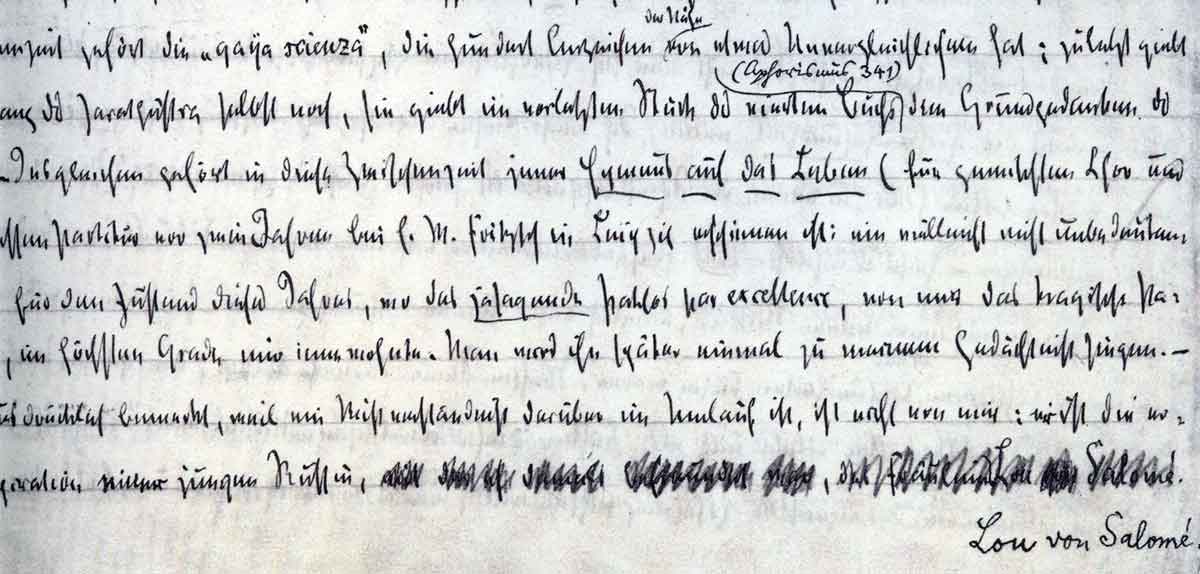 der Nähe
gehört die „gaya scienza", die hundert Anzeichen von etwas Unvergleichlichem hat; zuletzt giebt
(Aphorismus 341)
ang des Zarathustra selbst noch, sie giebt im vorletzten Stück des vierten Buchs den Grundgedanken des
– Desgleichen gehört in diese Zwischenzeit jener Hymnus auf das Leben (für gemischten Chor und
ssen Partitur vor zwei Jahren bei E. W. Fritzsch in Leipzig erschienen ist: ein vielleicht nicht unbedeuten-
für den Zustand dieses Jahres, wo das jasagende Pathos par excellence, von mir das tragische Pa-
, im höchsten Grade mir innewohnte. Man wird ihn später einmal zu meinem Gedächtniß singen. –
drücklich bemerkt, weil ein Mißverständniß darüber im Umlauf ist, ist nicht von mir: er ist die er-
piration einer jungen Russin, Salomé.
Lou von Salomé.